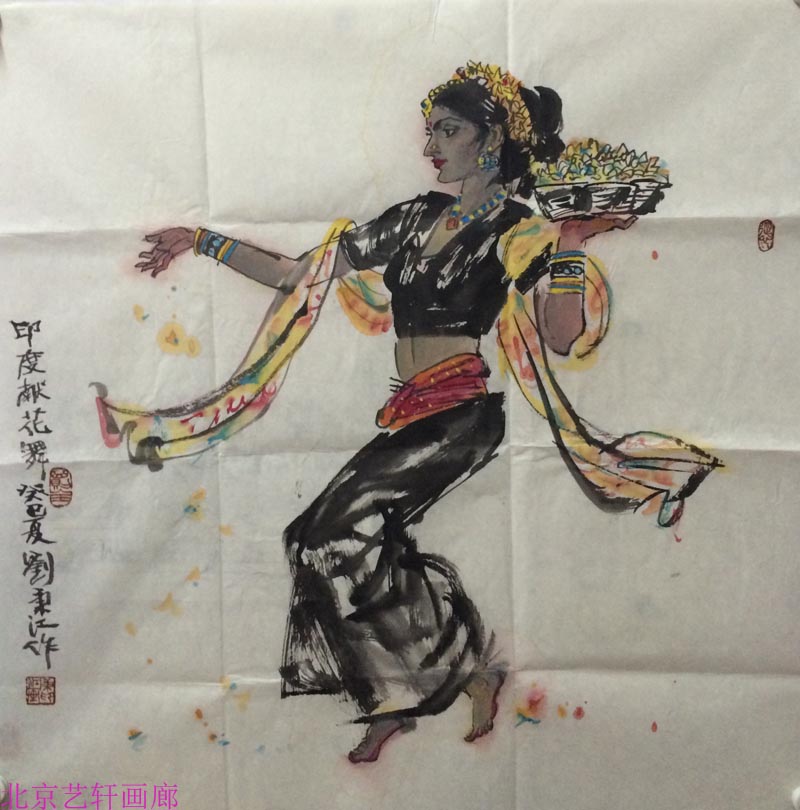 印度献花舞
癸巳夏劉秉江作
北京艺轩画廊